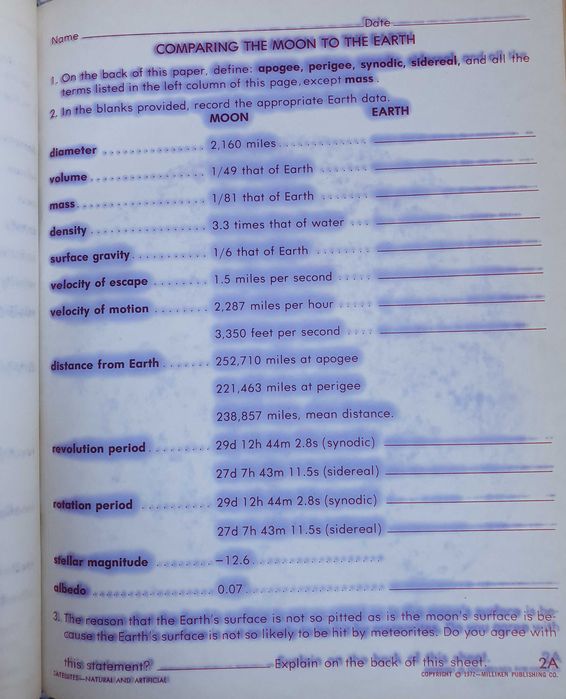 Name Date
COMPARING THE MOON TO THE EARTH
1. On the back of this paper, define: apogee, perigee, synodic, sidereal, and all the
terms listed in the left column of this page, except mass.
2. In the blanks provided, record the appropriate Earth data.
MOON EARTH
diameter 2,160 miles
volume 1/49 that of Earth
mass 1/81 that of Earth
density 3.3 times that of water
surface gravity 1/6 that of Earth
velocity of escape 1.5 miles per second
velocity of motion 2,287 miles per hour
3,350 feet per second
distance from Earth 252,710 miles at apogee
221,463 miles at perigee
238,857 miles, mean distance.
revolution period 29d 12h 44m 2.8s (synodic)
27d 7h 43m 11.5s (sidereal)
rotation period 29d 12h 44m 2.8s (synodic)
27d 7h 43m 11.5s (sidereal)
stellar magnitude −12.6
albedo 0.07
3. The reason that the Earth's surface is not so pitted as is the moon's surface is be-
cause the Earth's surface is not so likely to be hit by meteorites. Do you agree with
this statement? Explain on the back of this sheet. 2A
SATELLITES—NATURAL AND ARTIFICIAL COPYRIGHT © 1972—MILLIKEN PUBLISHING CO.